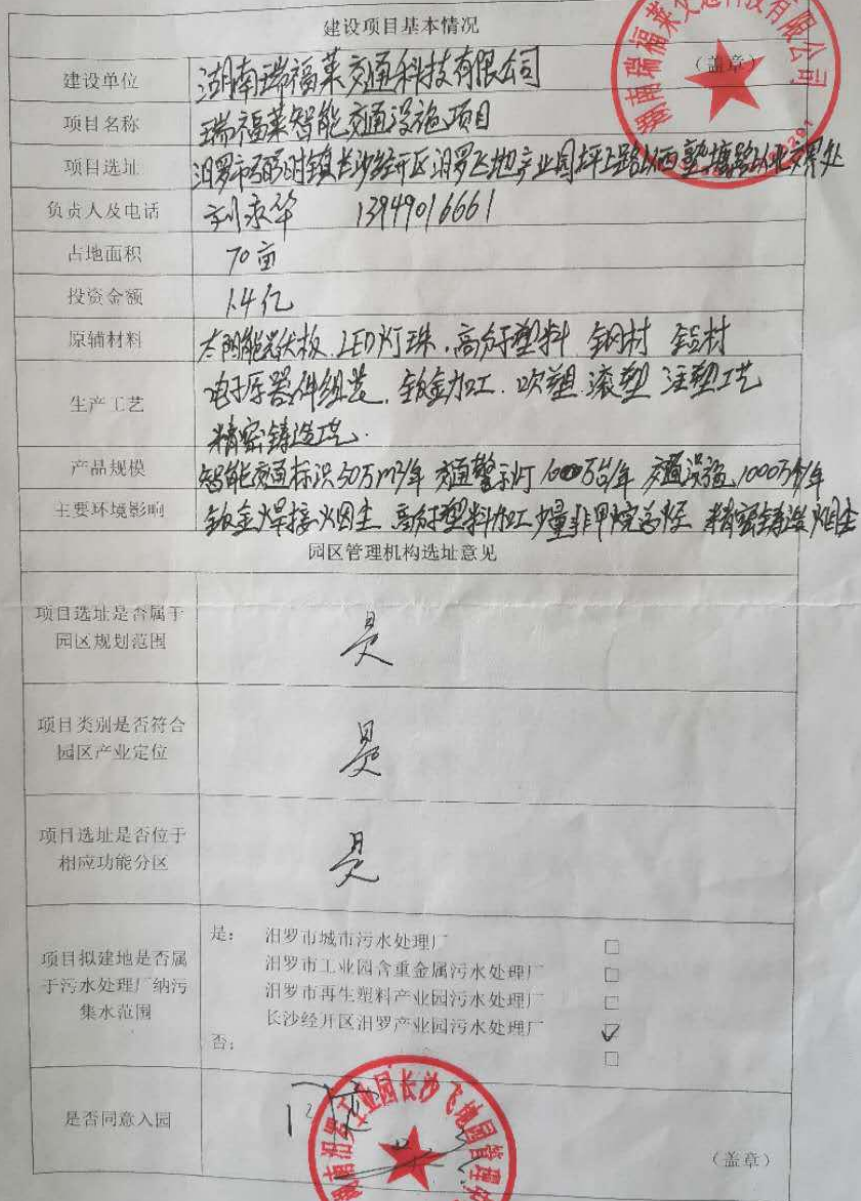 建设项目基本情况
建设单位 湖南瑞福莱交通科技有限公司 (盖章)
湖南瑞福莱交通科技有限公司
项目名称 瑞福莱智能交通设施项目
项目选址 汨罗市弼时镇长沙经开区汨罗飞地产业园坪上路以西塾塘路以北交界处
负责人及电话 刘永华 13949016661
占地面积 70亩
投资金额 1.4亿
原辅材料 太阳能光伏板.LED灯珠.高分子塑料 钢材 铝材
生产工艺 电子原器件组装.钣金加工.吹塑.滚塑 注塑工艺
精密铸造工艺.
产品规模 智能交通标识50万m²/年 交通警示灯1000万台/年 交通设施1000万件/年
主要环境影响 钣金焊接烟尘 高分子塑料加工少量非甲烷总烃 精密铸造烟尘
园区管理机构选址意见
项目选址是否属于
园区规划范围
是
项目类别是否符合
园区产业定位
是
项目选址是否位于
相应功能分区
是
项目拟建地是否属
于污水处理厂纳污
集水范围
是: 汨罗市城市污水处理厂 □
汨罗市工业园含重金属污水处理厂 □
汨罗市再生塑料产业园污水处理厂 □
长沙经开区汨罗产业园污水处理厂 ☑
否: □
是否同意入园
(盖章)